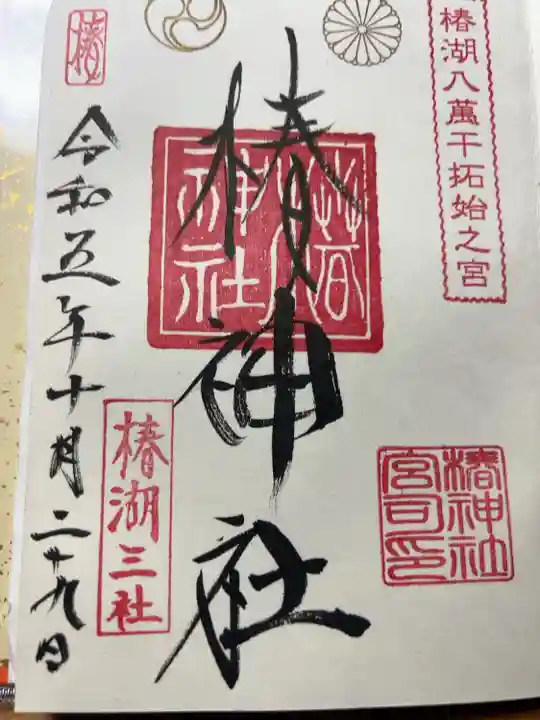 椿湖八萬干拓始之宮
椿神社
椿神社
宮司印
椿神社
椿湖三社
椿
令和五年十月二十九日